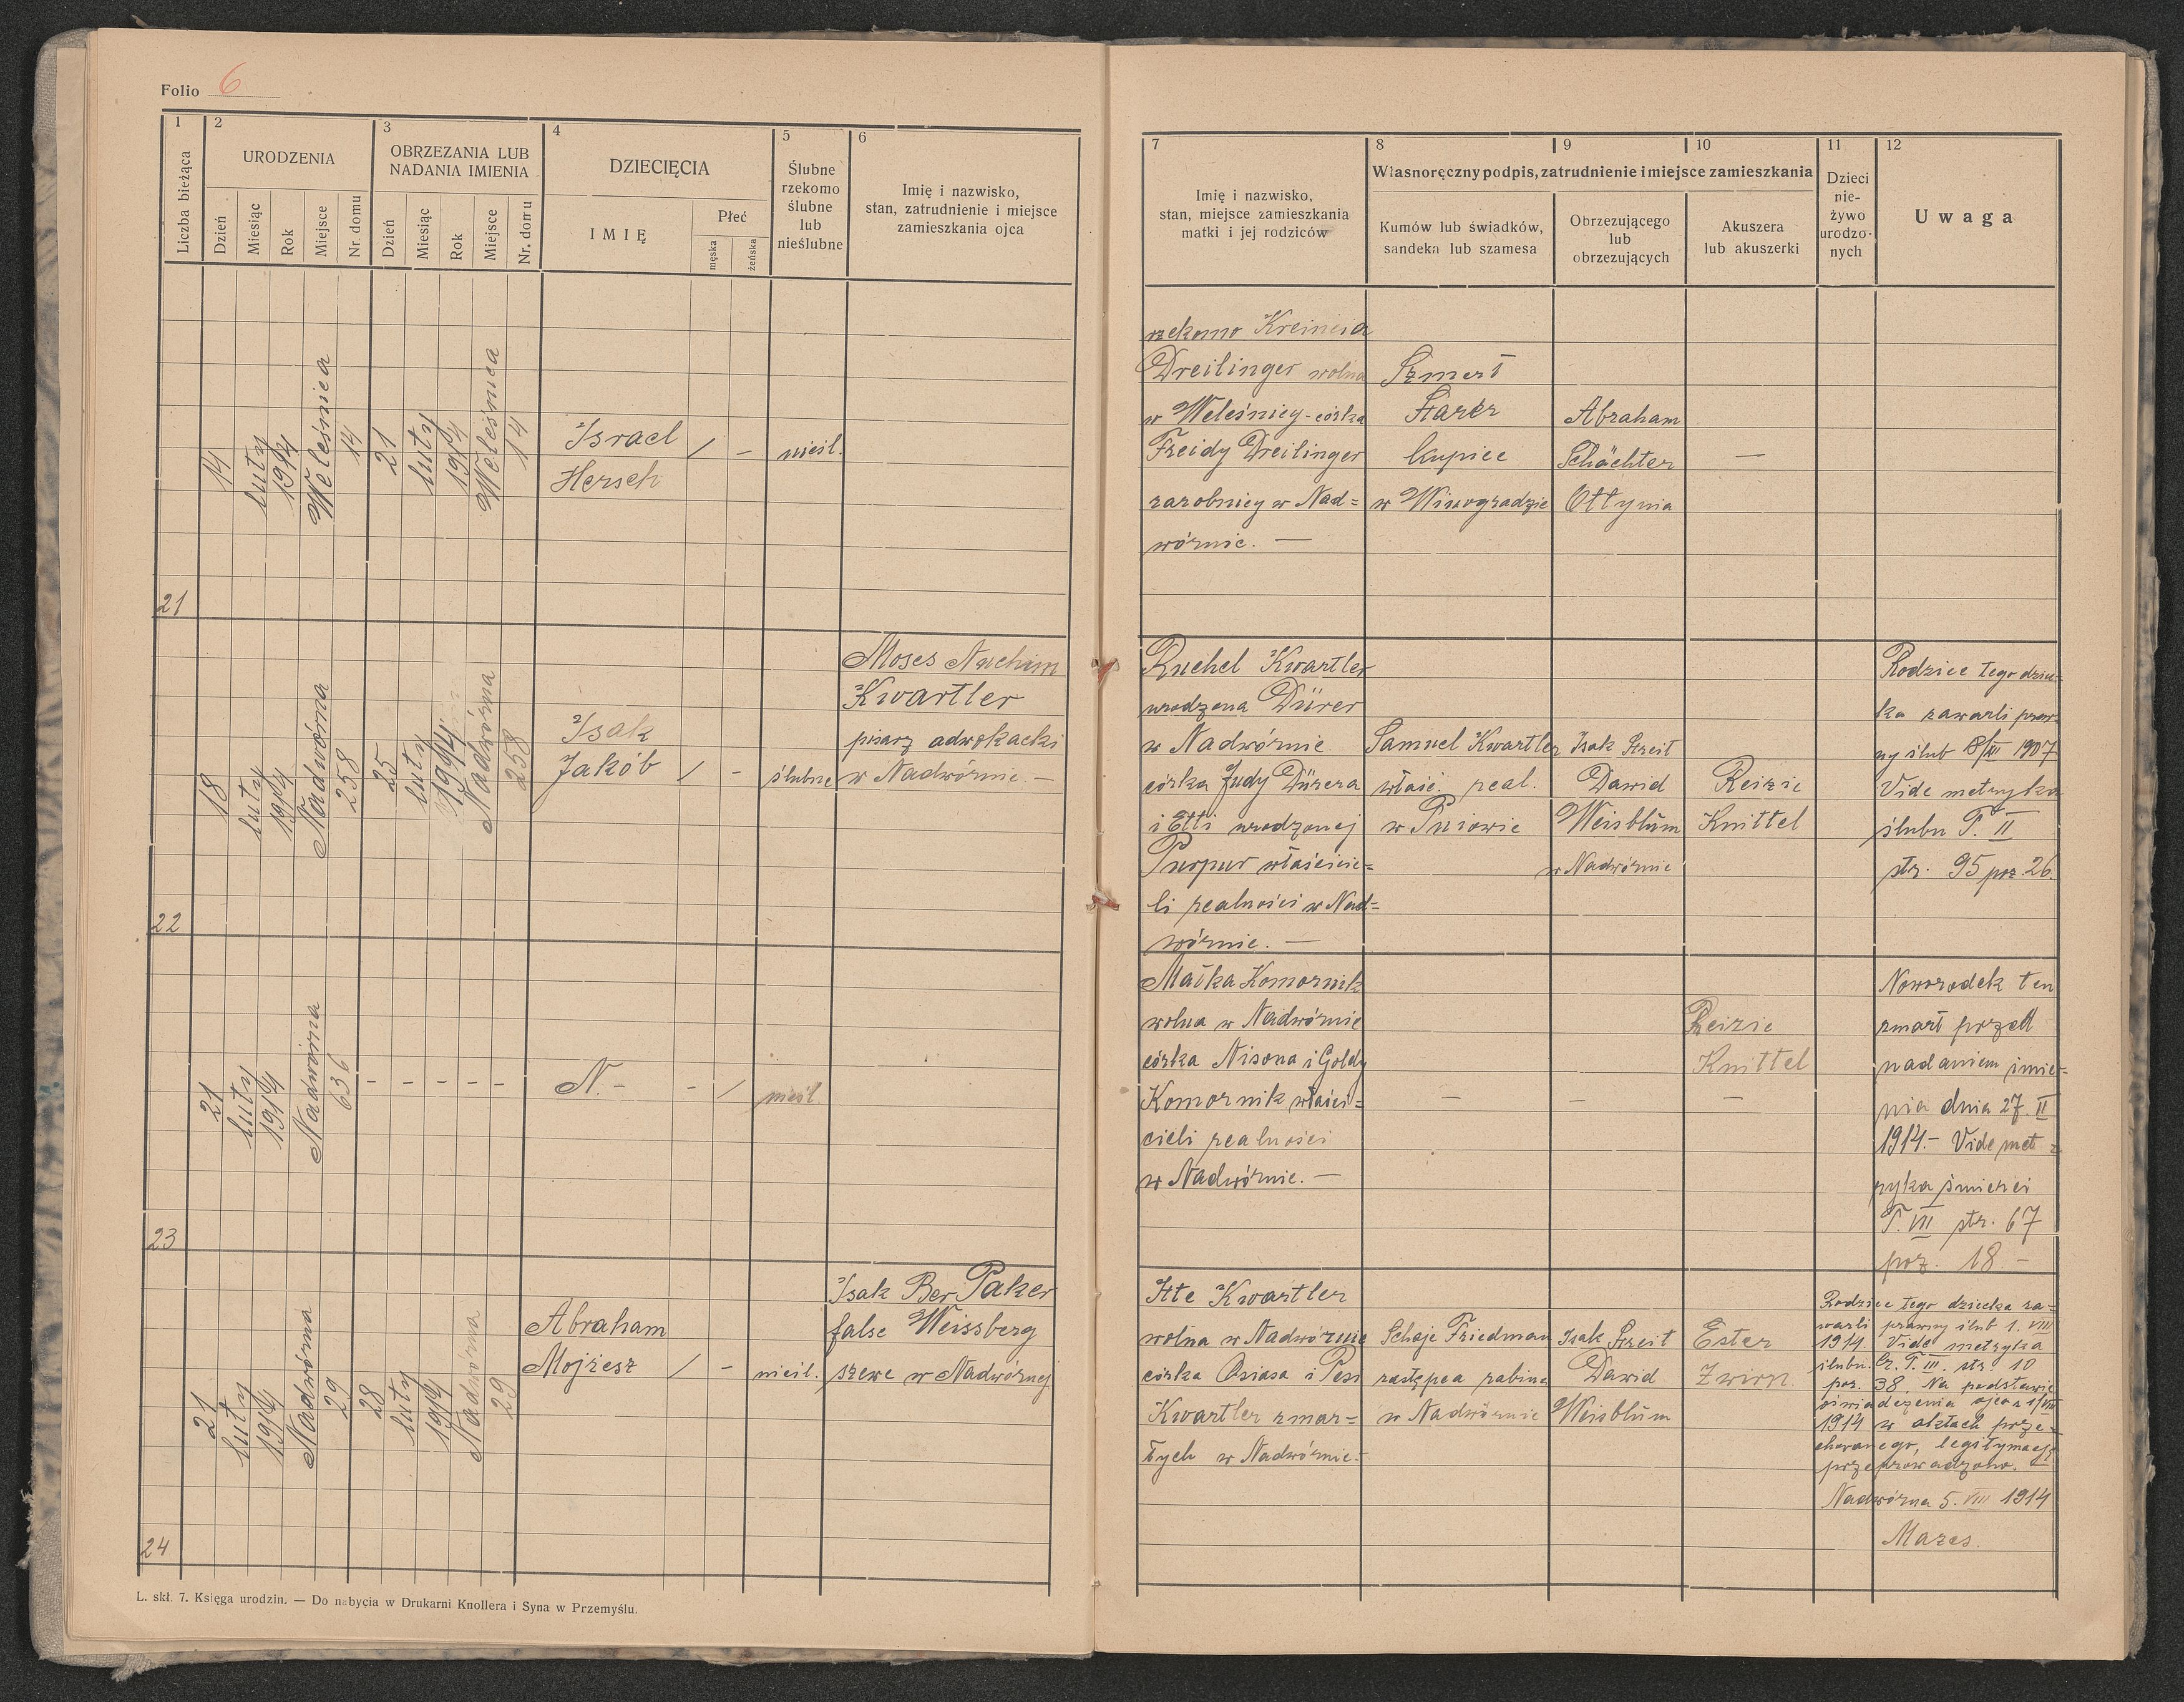 Folio 6
1
2
3
4
5
6
Liczba bieżąca
URODZENIA
OBRZEZANIA LUB
NADANIA IMIENIA
DZIECIĘCIA
Ślubne
rzekomo
ślubne
lub
nieślubne
Imię i nazwisko,
stan, zatrudnienie i miejsce
zamieszkania ojca
Dzień
Miesiąc
Rok
Miejsce
Nr. domu
Dzień
Miesiąc
Rok
Miejsce
Nr. domu
IMIĘ
Płeć
męska
żeńska
7
8
9
10
11
12
Imię i nazwisko,
stan, miejsce zamieszkania
matki i jej rodziców
Własnoręczny podpis, zatrudnienie i miejsce zamieszkania
Kumów lub świadków,
sandeka lub szamesa
Obrzezującego
lub
obrzezujących
Akuszera
lub akuszerki
Dzieci
nie-
żywo
urodzo-
nych
Uwaga
21
14
luty
1914
Weleśnica
14
21
luty
1914
Weleśnica
14
Israel
Hersch
/ -
nieśl.
rzekomo Kreincia
Dreilinger wolna
w Weleśnicy - córka
Freidy Dreilinger
zarobnicy w Nad=
wórnie. —
Szmerl
Harer
kupiec
w Winogradzie
Abraham
Schächter
Ottynia
—
22
18
luty
1914
Nadwórna
258
25
luty
1914
Nadwórna
258
Isak
Jakób
/ -
ślubne
Moses Nuchim
Kwartler
pisarz adwokacki
w Nadwórnie. —
Ruchel Kwartler
urodzona Dürer
w Nadwórnie
córka Judy Dürera
i Etti urodzonej
Purpur właścicie=
li realności w Nad=
wórnie. —
Samuel Kwartler
właśc. real.
w Pniowie
Isak Streit
Dawid
Weisblüm
w Nadwórnie
Reizie
Knittel
Rodzice tego dziec-
ka zawarli praw-
ny ślub 8/III 1907
Vide metryka
ślubu T. II
str. 95 poz. 26.
23
21
luty
1914
Nadwórna
636
- - - - -
N. -
- /
nieśl.
Malka Komornik
wolna w Nadwórnie
córka Nisona i Goldy
Komornik właści=
cieli realności
w Nadwórnie. —
—
—
Reizie
Knittel
—
Noworodek ten
zmarł przed
nadaniem imie-
nia dnia 27. II
1914. - Vide met=
ryka śmierci
T. VII str. 67
poz. 18. -
24
21
luty
1914
Nadwórna
29
28
luty
1914
Nadwórna
29
Abraham
Mojżesz
/ -
nieśl.
Isak Ber Paker
false Weissberg
szewc w Nadwórnej
Itte Kwartler
wolna w Nadwórnie
córka Osiasa i Pesi
Kwartler zmar=
łych w Nadwórnie. -
Schaje Friedman
zastępca rabina
w Nadwórnie
Isak Streit
Dawid
Weisblüm
Ester
Zwirn
Rodzice tego dziecka za=
warli prawny ślub 1. VIII
1914. Vide metryka
ślubu. T. III. str. 10
poz. 38. Na podstawie
oświadczenia ojca
1914 w aktach prze=
chowanego, legitymację
przeprowadzono. —
Nadwórna 5. VIII 1914
Mazes.
L. skł. 7. Księga urodzin. — Do nabycia w Drukarni Knollera i Syna w Przemyślu.